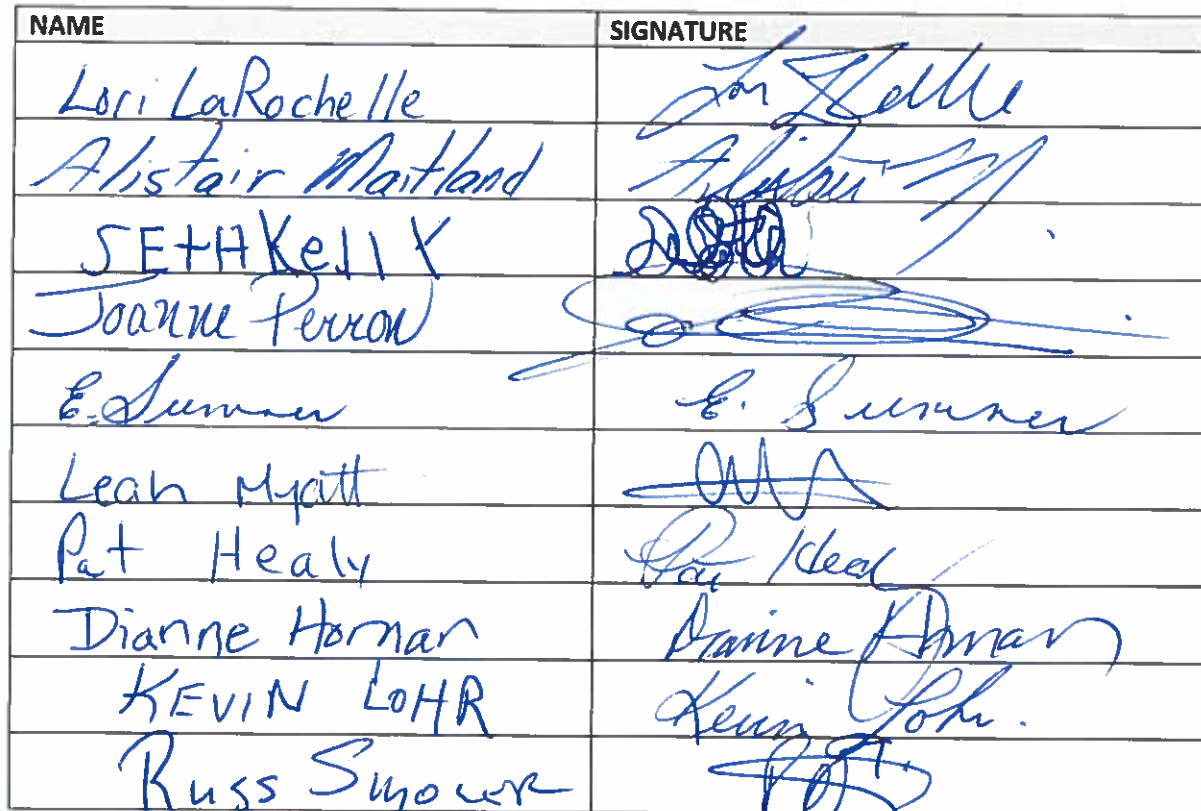 NAME SIGNATURE
Lori LaRochelle
Alistair Maitland Alistair
SETH Kelly Seth
Joanne Perron
E. Sumner E. Sumner
Leah Myatt
Pat Healy Pat
Dianne Hornan Dianne Hornan
KEVIN LOHR Kevin Lohr.
Russ